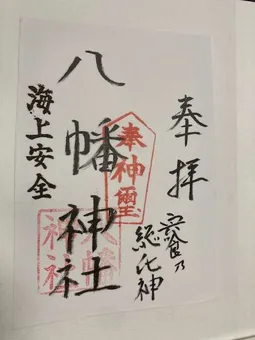 奉拝
乃
総氏神
八幡神社
奉神璽
八幡
神社
海上安全